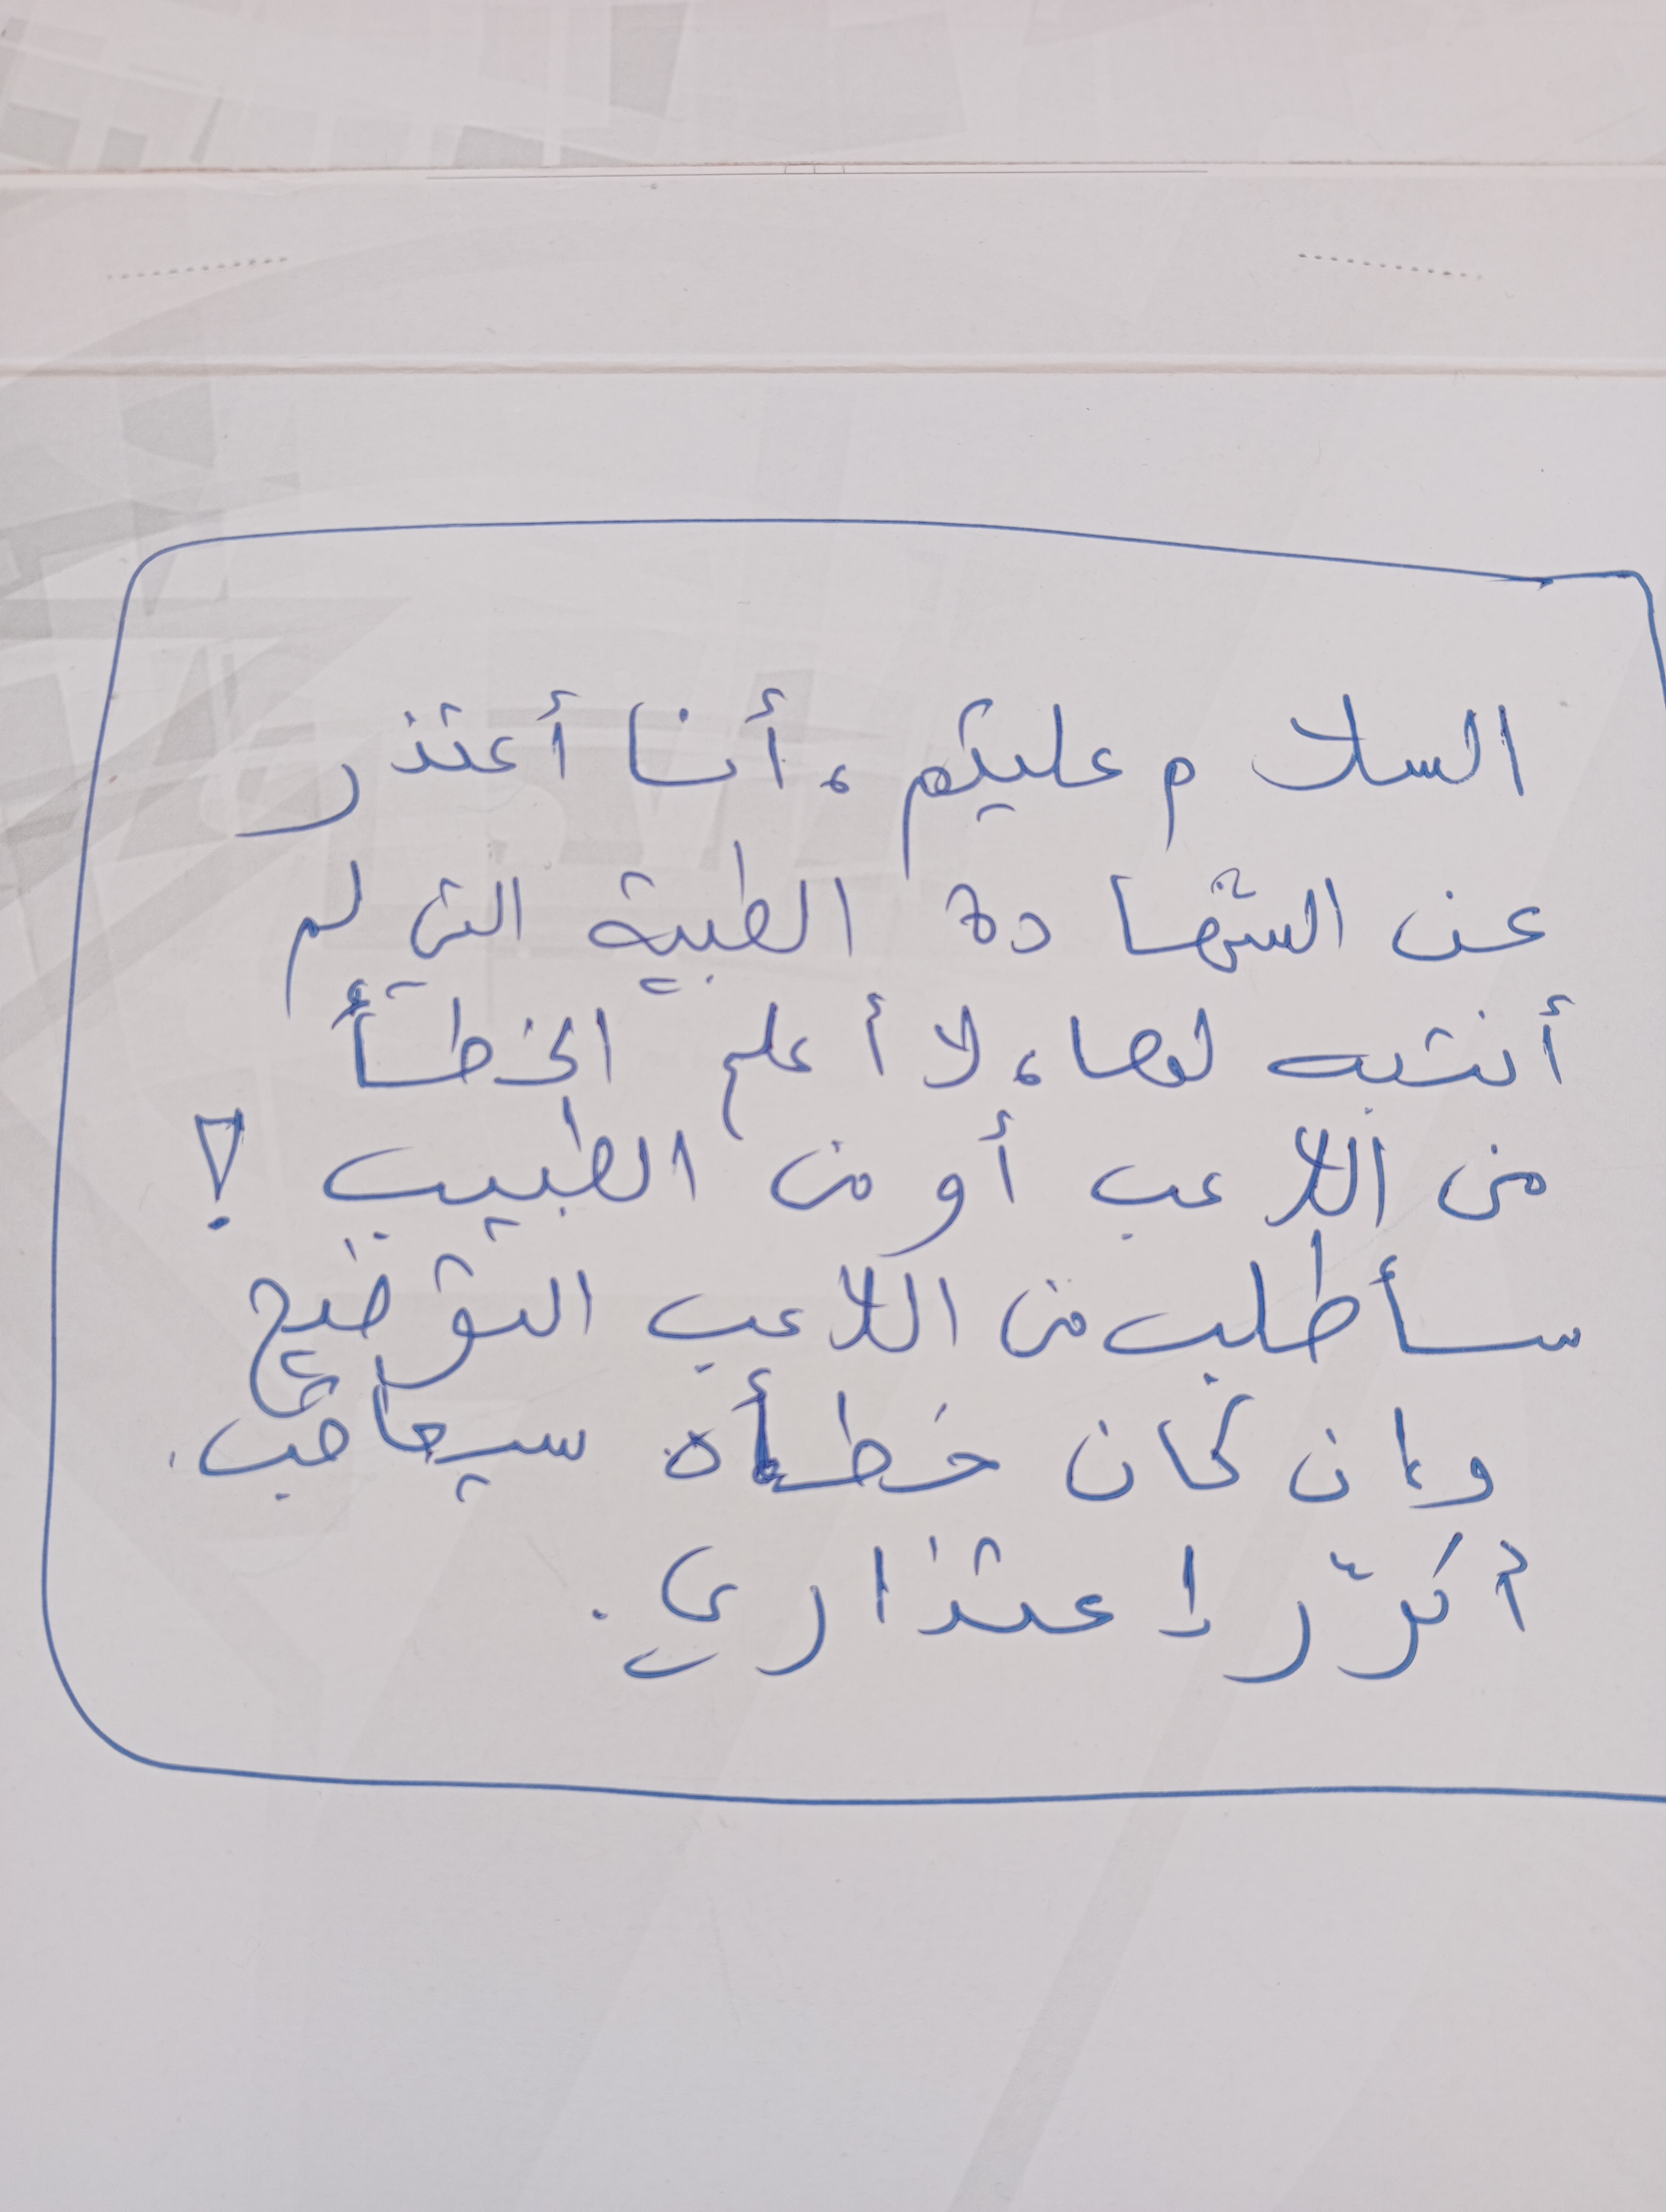 السلام عليكم، أنا أعتذر
عن الشهادة الطبية التي لم
أنتبه لها، لا أعلم الخطأ
من اللاعب أو من الطبيب !
سأطلب من اللاعب التوضيح
وإن كان خطأه سيعاقب.
أكرّر إعتذاري.